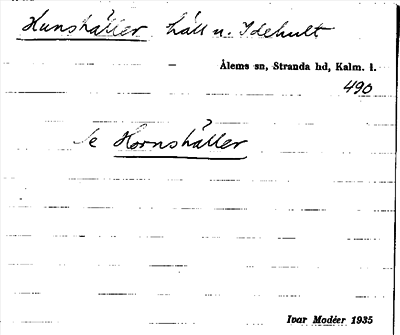 Hunshäller häll u. Idehult
Ålems sn, Stranda hd, Kalm. l.
490
Se Hornshäller
Ivar Modéer 1935